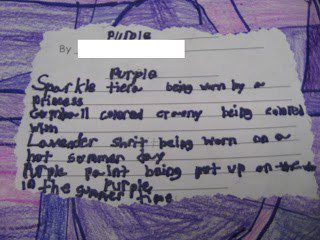 Purple
By
Purple
Sparkle tiera being worn by a
princess
Gomball colored crayony being colored
with
Lavender shrit being worn on a
hot sommer day
Purple paint being put up on the
in the summer time
Purple